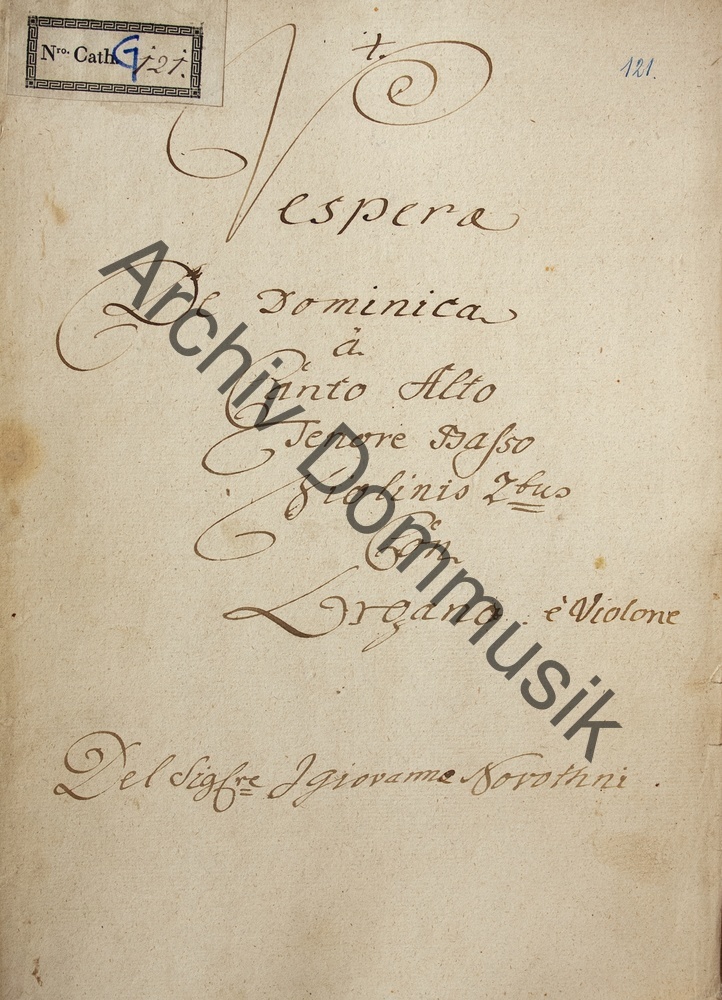 Nro. Cath. G 121.
+.
121.
Vesperæ
De Dominica
à
Canto Alto
Tenore Basso
Violinis 2bus
Con
Organo è Violone
Del Sigre Giovanne Novothni.
Archiv Dommusik